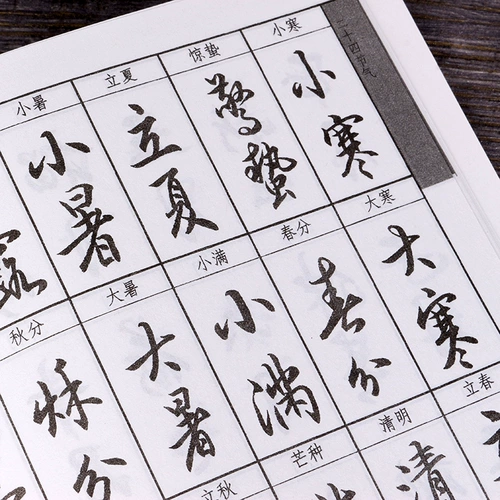 二十四节气
小寒
惊蛰
立夏
小暑
小寒
驚蟄
立夏
小暑
露
大寒
春分
小满
大暑
秋分
大寒
春分
小满
大暑
秋分
立春
清明
芒种
立秋
清